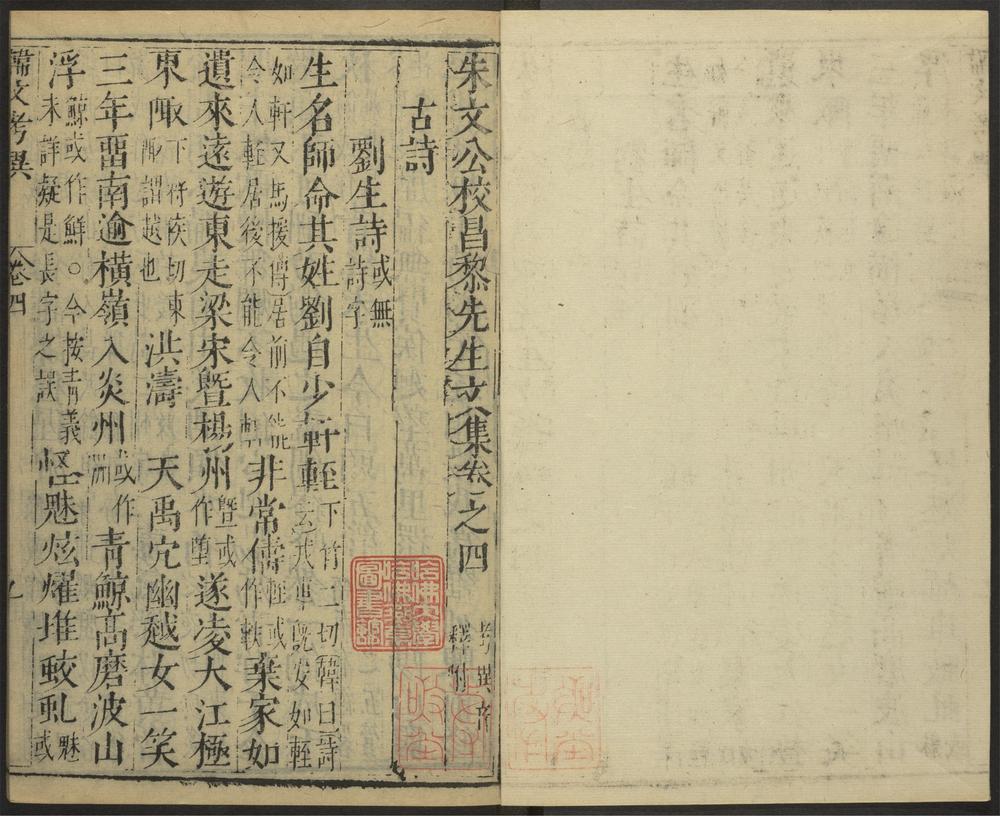 朱文公校昌黎先生文集卷之四 考異音釋附
古詩
劉生詩 或無詩字
生名師命其姓劉自少軒輊 下竹二切韓曰詩云戎車旣安如輊
如軒又馬援傳居前不能令人輊居後不能令人軒 非常儔 輊或作軼 棄家如
遺來遠遊東走梁宋曁楊州 曁或作墮 遂凌大江極
東陬 下將侯切東陬謂越也 洪濤 天禹穴幽越女一笑
三年畱南逾橫嶺入炎州 或作洲 青鯨高磨波山
浮 鯨或作鮮。今按青義未詳疑是長字之誤 怪魅炫燿堆蛟虬 魅或
韓文考異 卷四
哈佛大學哈佛燕京圖書館